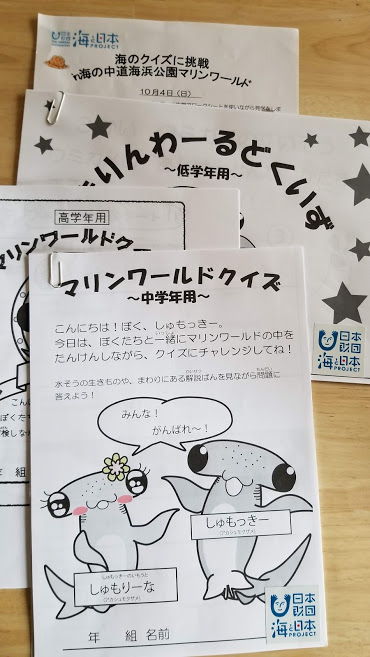 日本財団
海と日本
PROJECT
海のクイズに挑戦
n海の中道海浜公園マリンワールド
10月4日(日)
まりんわーるどくいず
~低学年用~
日本財団
海と日本
PROJECT
高学年用
マリンワールドク
年 組
マリンワールドクイズ
~中学年用~
こんにちは!ぼく、しゅもっきー。
今日は、ぼくたちと一緒にマリンワールドの中を
たんけんしながら、クイズにチャレンジしてね!
水そうの生きものや、まわりにある解説ばんを見ながら問題に
答えよう!
みんな!
がんばれ~!
しゅもっきー
(アカシュモクザメ)
しゅもっきーのいもうと
しゅもりーな
(アカシュモクザメ)
年 組 名前
日本財団
海と日本
PROJECT